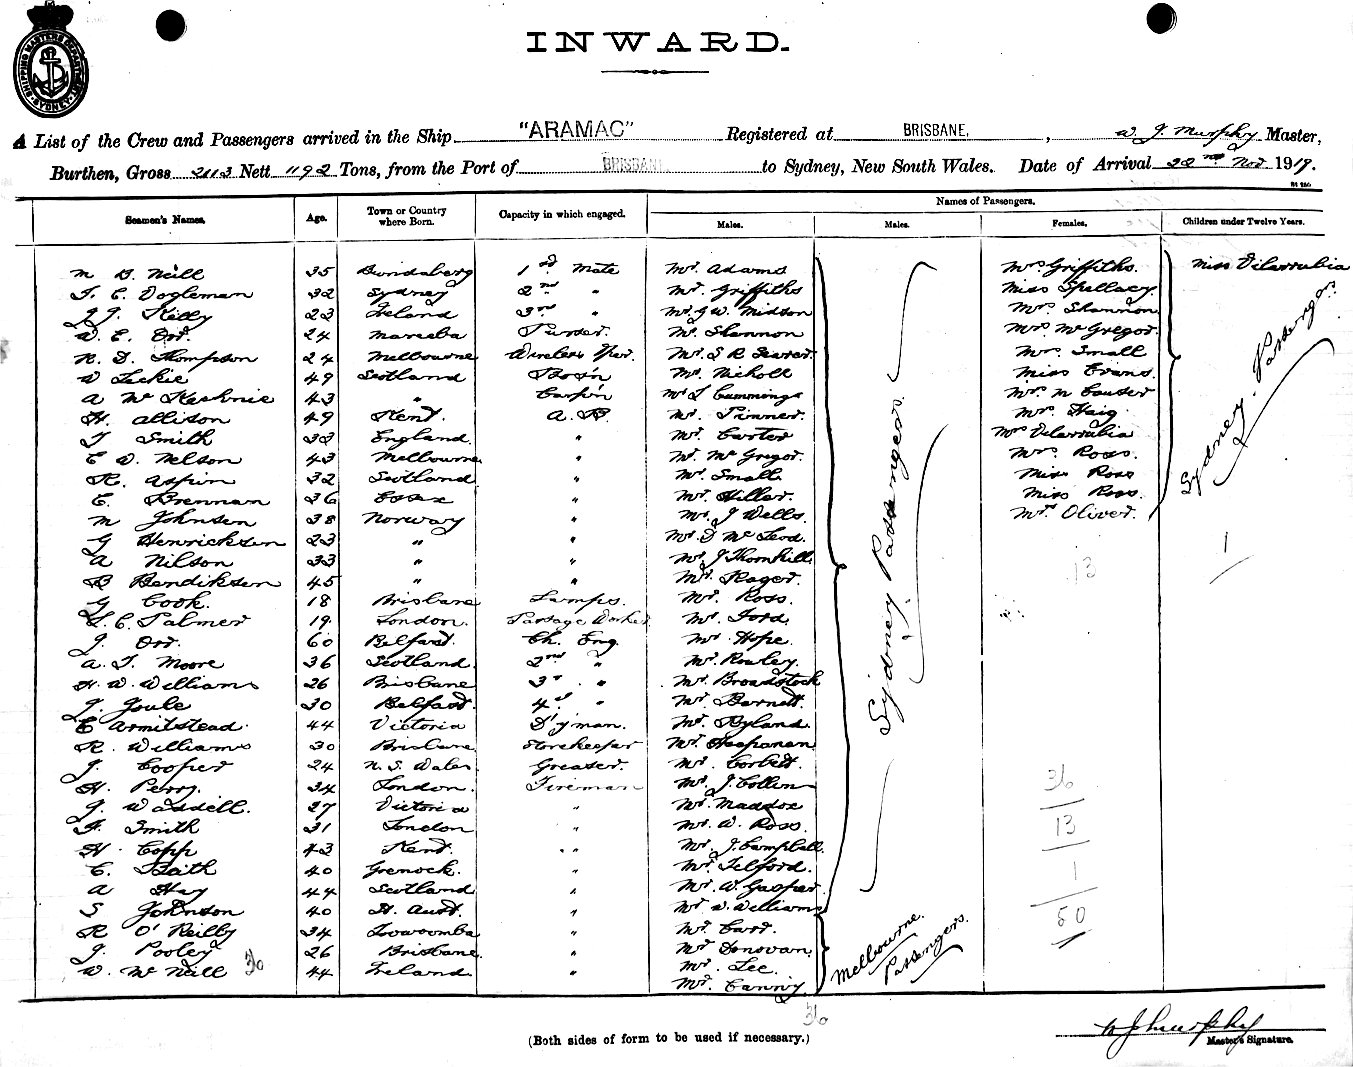 SHIPPING MASTERS DEPARTMENT SYDNEY
INWARD.
A List of the Crew and Passengers arrived in the Ship "ARAMAC" Registered at BRISBANE, , W. J. Murphy Master,
Burthen, Gross 2113 Nett 1192 Tons, from the Port of BRISBANE to Sydney, New South Wales. Date of Arrival 22nd Nov 1919.
Names of Passengers.
Seamen's Names. Age. Town or Country where Born. Capacity in which engaged. Males. Males. Females. Children under Twelve Years.
M B. Neill 35 Bundaberg 1st Mate Mr. Adams Mrs Griffiths. Miss Vilarrubia
T. C. Vogleman 32 Sydney 2nd " Mr. Griffiths Miss Spellacy.
J. J. Kelly 23 Ireland 3rd " Mr. G. W. Midson Mrs. Shannon
W. E. Orr. 24 Mareeba Purser. Mr. Shannon Mrs McGregor.
R. D. Thompson 24 Melbourne Wireless Oper. Mr. S R Mrs. Small
W Leckie 49 Scotland Bos'n Mr. Nicholl Miss Evans.
A Mc Kechnie 43 " Carp'n Mr S Cummings Mrs. N Causer
H. Allison 49 Kent. A. B. Mr. Pinner. Mrs. Haig
T Smith 33 England. " Mr. Carter Mrs Vilarrubia
C W. Nelson 43 Melbourne " Mr. McGregor. Mrs. Ross.
R. Aspin 32 Scotland. " Mr. Small. Miss Ross
C. Brennan 36 Essex " Mr. Hillar. Miss Ross.
M Johnsen 38 Norway " Mr. J Wells. Mrs. Oliver.
G Henricksen 23 " " Mr. D McLeod.
A Nilson 33 " " Mr. J Thornhill. 13
B Bendiksen 45 " " Mr. Rager.
G Cook. 18 Brisbane Lamps. Mr. Ross.
L. C. Palmer 19. London. Passage Worker Mr. Ford.
J. Orr. 60 Belfast. Ch. Eng. Mr. Hope.
A. T. Moore 36 Scotland. 2nd " Mr. Rowley.
H. W. Williams 26 Brisbane 3rd " Mr. Broadstock
J. Joule 30 Belfast 4th " Mr. Barnett.
E Armitstead. 44 Victoria D'yman. Mr. Ryland.
R. Williams 30 Brisbane Storekeeper Mr. Heapanen
J. Cooper 24 N. S. Wales Greaser. Mr. Corbett.
H. Perry. 34 London. Fireman Mr. J. Collin 36
J. Waddell. 27 Victoria " Mr. Maddox
F. Smith 31 London " Mr. W. Ross. 13
H. Copp 43 Kent. " Mr. J. Campbell.
C. Baith 40 Grenock. " Mr. Telford. 1
A Hay 44 Scotland " Mr. W. Gasper.
S Johnson 40 St. Aust. " Mr W. Williams 50
R O'Reilly 34 Toowoomba " Mr. Carr.
J. Pooley 26 Brisbane. " Mr Donovan.
W. McNeill 36 44 Ireland. " Mr. Lee.
Mr. Canny.
36
Sydney Passengers.
Melbourne Passengers.
Sydney. Passengers.
1
W J Murphy
Master's Signature.
(Both sides of form to be used if necessary.)